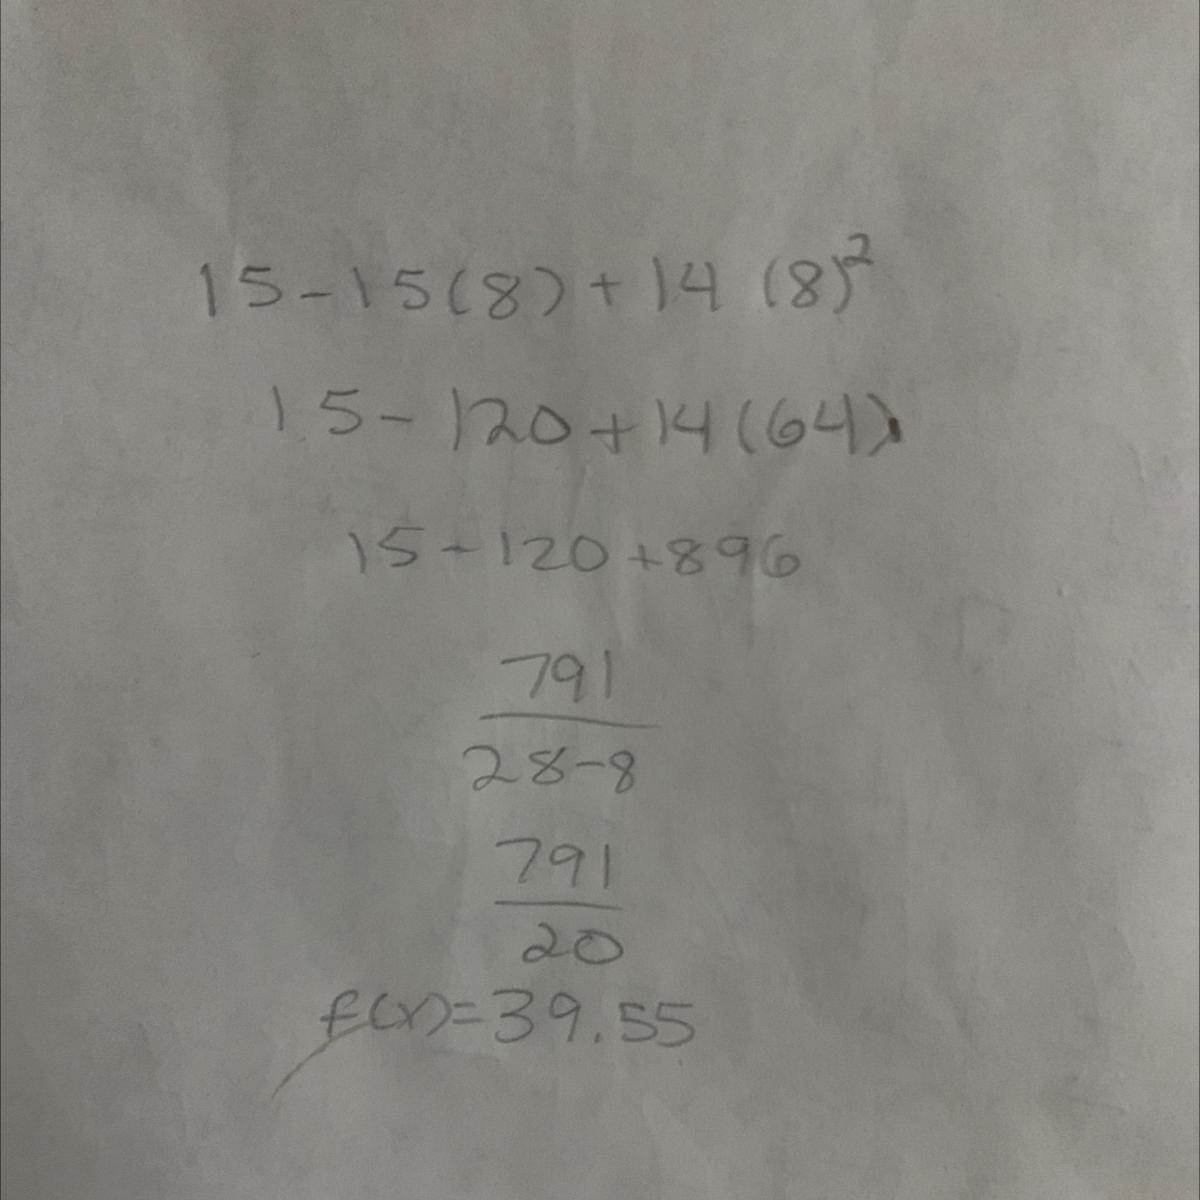 15-15(8)+14 (8)²
15-120+14(64)
15-120+896
791
28-8
791
20
f(x)=39.55